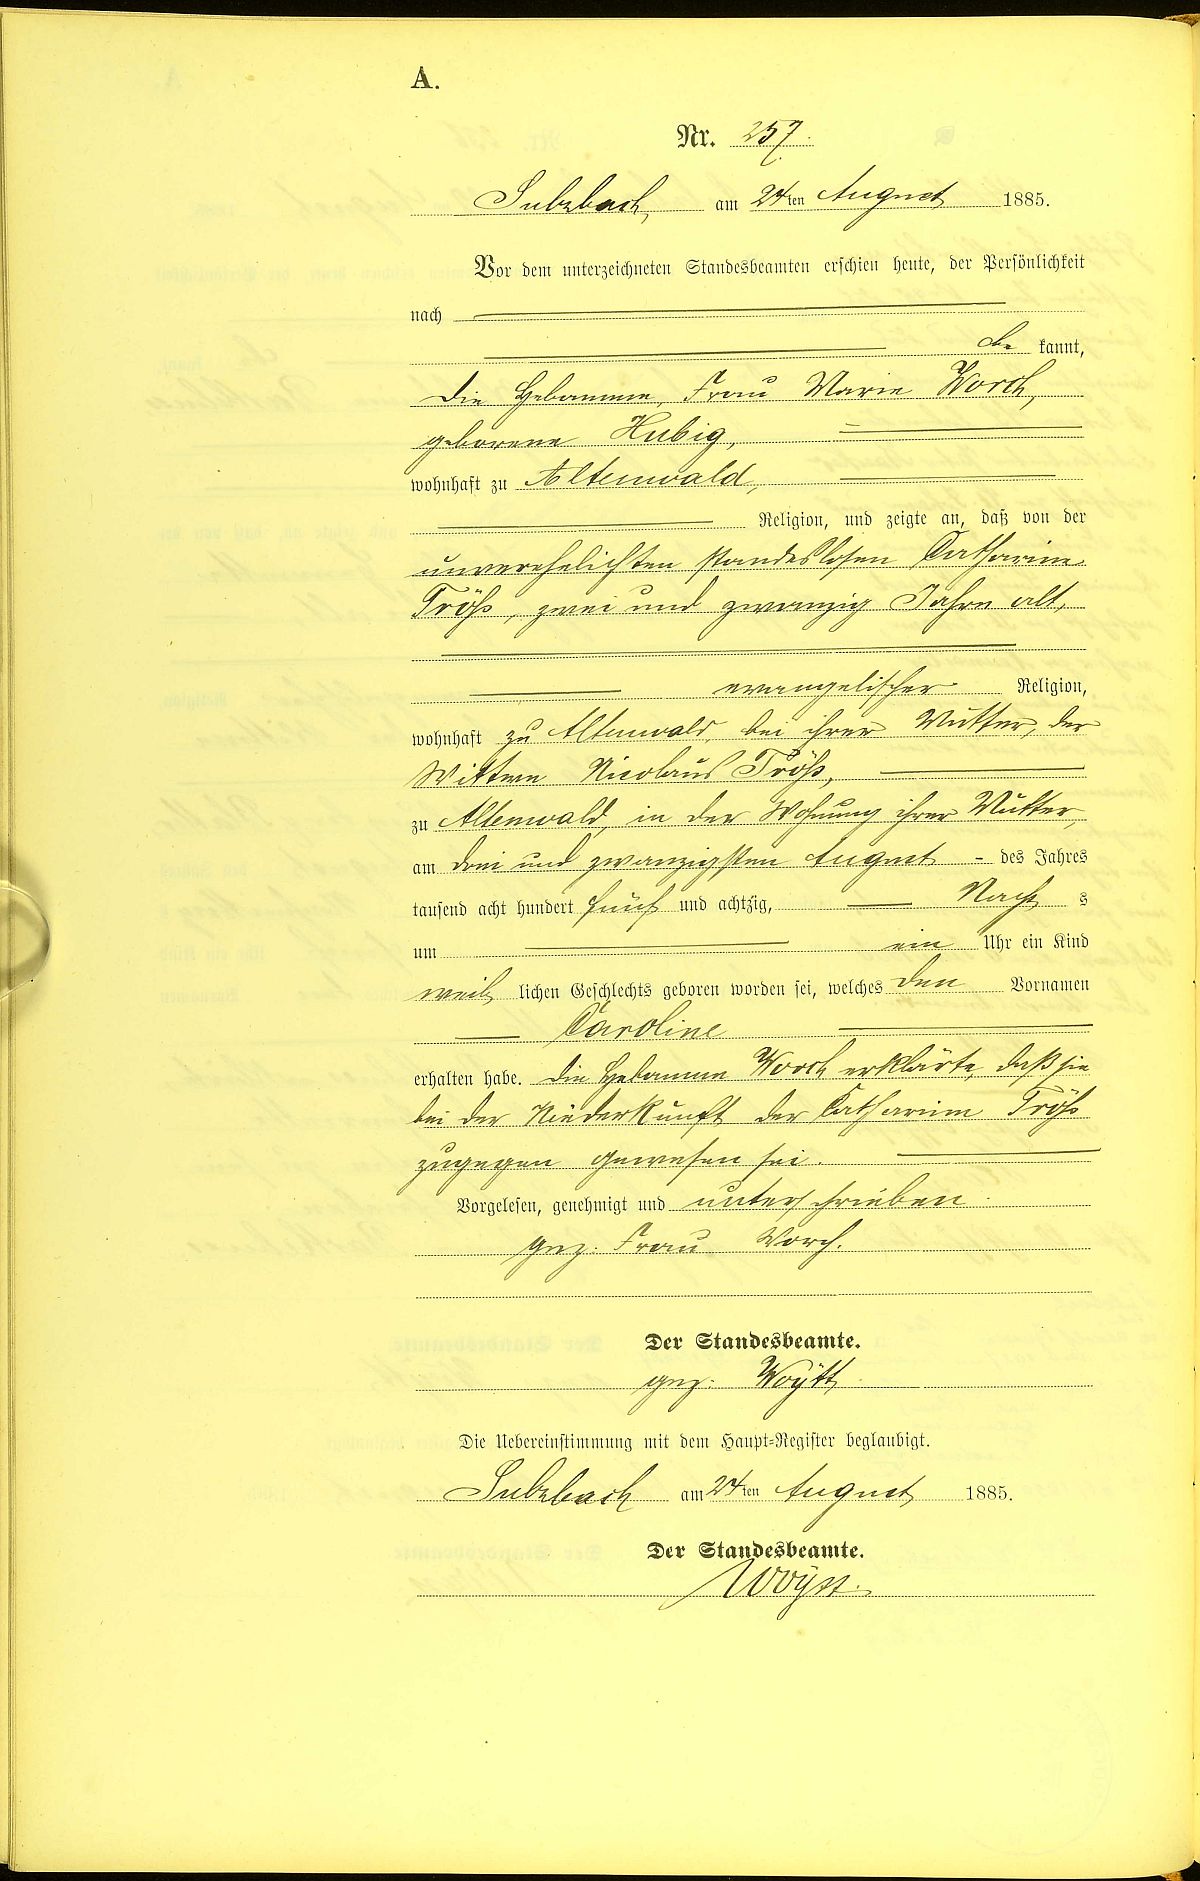 A.
Nr. 257.
Sulzbach, am 24ten August 1885.
Vor dem unterzeichneten Standesbeamten erschien heute, der Persönlichkeit
nach
be kannt,
die Hebamme, Frau Marie Worch,
geborene Hubig,
wohnhaft zu Altenwald,
Religion, und zeigte an, daß von der
unverehelichten standeslosen Catharine
Tröß, zwei und zwanzig Jahre alt,
evangelischer Religion,
wohnhaft zu Altenwald, bei ihrer Mutter, der
Wittwe Nicolaus Tröß,
zu Altenwald, in der Wohnung ihrer Mutter,
am drei und zwanzigsten August - des Jahres
tausend acht hundert fünf und achtzig, Nacht s
um ein Uhr ein Kind
weib lichen Geschlechts geboren worden sei, welches den Vornamen
Caroline
erhalten habe. Die Hebamme Worch erklärte, daß sie
bei der Niederkunft der Catharine Tröß
zugegen gewesen sei.
Vorgelesen, genehmigt und unterschrieben.
gez. Frau Worch.
Der Standesbeamte.
gez. Woytt
Die Uebereinstimmung mit dem Haupt-Register beglaubigt.
Sulzbach am 24ten August 1885.
Der Standesbeamte.
Woytt.